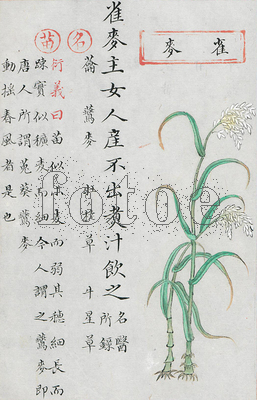 雀麥
雀麥主女人產不出煮汁飲之名醫所錄
名
蘥 鷰麥 杜姥草 牛星草
苗
衍義曰苗似小麥而弱其穗細長而
疎實似穬麥而細今人謂之鷰麥即
唐人所謂菟葵鷰麥
動搖春風者是也
fotoe